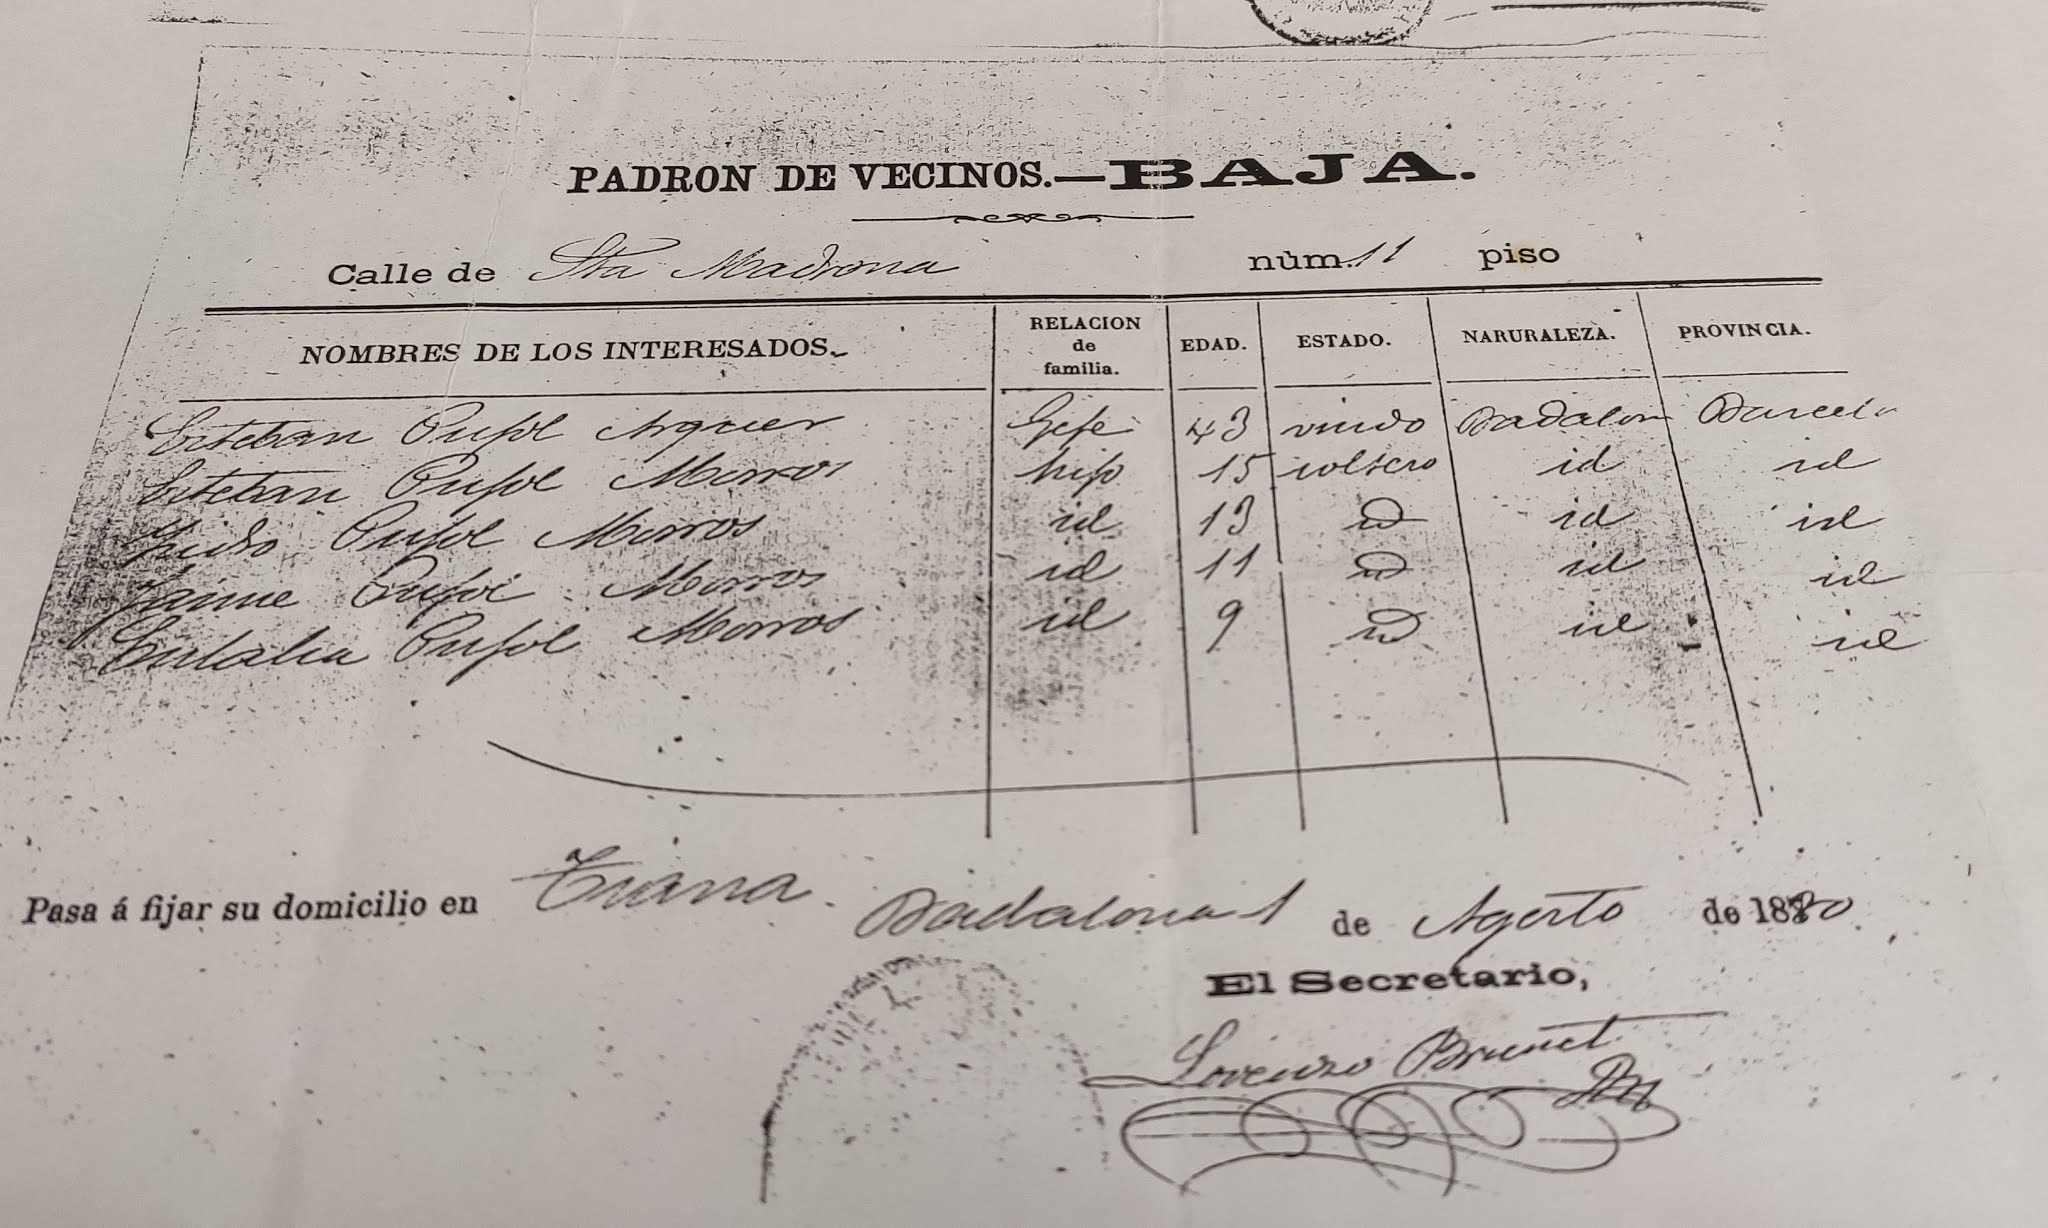 PADRON DE VECINOS.—BAJA.
Calle de Sta Madrona núm. 11 piso
NOMBRES DE LOS INTERESADOS. RELACION de familia. EDAD. ESTADO. NARURALEZA. PROVINCIA.
Esteban Pujol Arquer Gefe 43 viudo Badalon Barcelo
Esteban Pujol Morros hijo 15 soltero id id
Ysidro Pujol Morros id 13 id id id
Jaime Pujol Morros id 11 id id id
Eulalia Pujol Morros id 9 id id id
Pasa á fijar su domicilio en Tiana. Badalona 1 de Agosto de 1880.
El Secretario,
Lorenzo Brunet